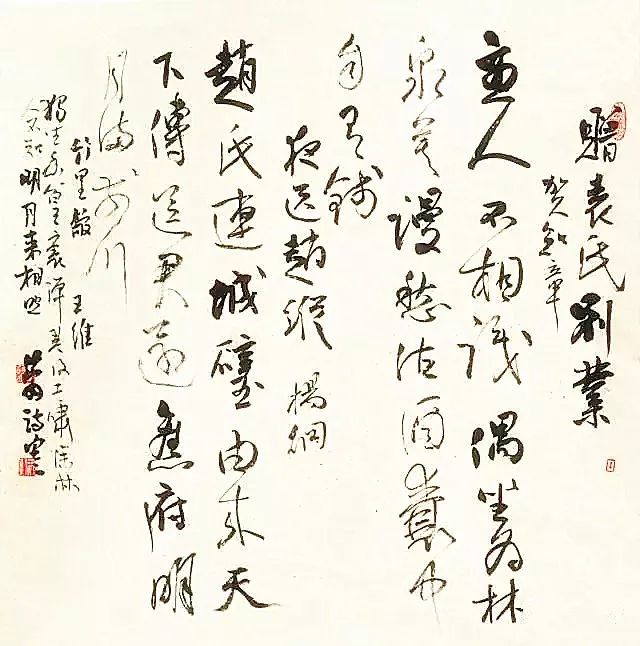 贈袁氏別業
賀知章
主人不相識偶坐為林
泉莫謾愁沽酒囊中
自有錢
夜送趙縱 楊炯
趙氏連城璧由來天
下傳送君還舊府明
月滿前川
竹里館 王維
獨坐幽篁裏彈琴復長嘯深林
人不知明月來相照